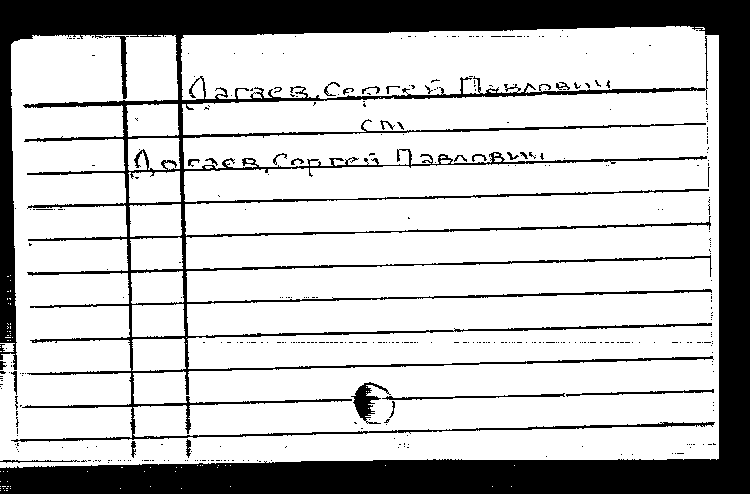 Дагаев, Сергей Павлович
см
Догаев, Сергей Павлович